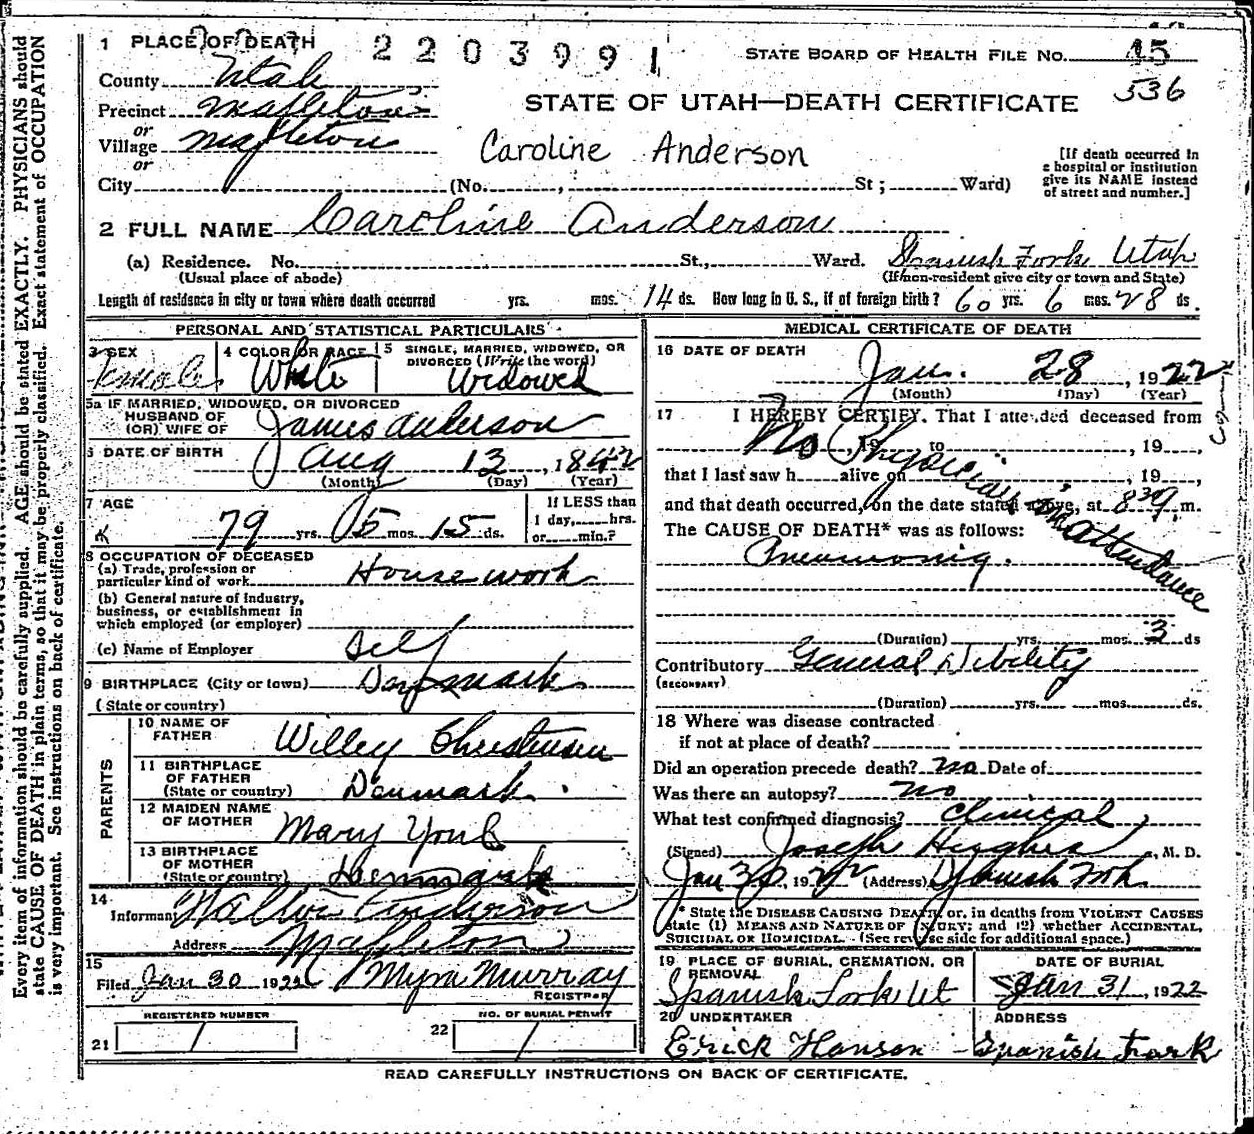 1 PLACE OF DEATH
2203991
STATE BOARD OF HEALTH FILE NO. 45
536
County Utah
STATE OF UTAH—DEATH CERTIFICATE
Precinct Mapleton
or
Village Mapleton
Caroline Anderson
or
City (No. , St; Ward)
[If death occurred in
a hospital or institution
give its NAME instead
of street and number.]
2 FULL NAME Caroline Anderson
(a) Residence. No. St., Ward. Spanish Fork Utah
(Usual place of abode) (If non-resident give city or town and State)
Length of residence in city or town where death occurred yrs. mos. 14 ds. How long in U. S., if of foreign birth? 60 yrs. 6 mos. 28 ds.
PERSONAL AND STATISTICAL PARTICULARS
3 SEX
Female
4 COLOR OR RACE
White
5 SINGLE, MARRIED, WIDOWED, OR
DIVORCED (Write the word)
Widowed
5a IF MARRIED, WIDOWED, OR DIVORCED
HUSBAND OF
(OR) WIFE OF James Anderson
6 DATE OF BIRTH
Aug 13, 1842
(Month) (Day) (Year)
7 AGE
79 yrs. 05 mos. 15 ds.
If LESS than
1 day, hrs.
or min.?
8 OCCUPATION OF DECEASED
(a) Trade, profession or
particular kind of work House work
(b) General nature of industry,
business, or establishment in
which employed (or employer)
(c) Name of Employer Self
9 BIRTHPLACE (City or town) Denmark
(State or country)
PARENTS
10 NAME OF
FATHER Willey Christensen
11 BIRTHPLACE
OF FATHER
(State or country) Denmark.
12 MAIDEN NAME
OF MOTHER Mary York
13 BIRTHPLACE
OF MOTHER
(State or country) Denmark
14
Informant Anderson
Address Mapleton
15
Filed Jan 30 1922 Murray
REGISTRAR
REGISTERED NUMBER
21 1
NO. OF BURIAL PERMIT
22 1
MEDICAL CERTIFICATE OF DEATH
16 DATE OF DEATH
Jan. 28, 1922
(Month) (Day) (Year)
17 I HEREBY CERTIFY. That I attended deceased from
, 19 to , 19
No Physician in attendance
that I last saw h alive on , 19
and that death occurred, on the date stated above, at 830 m.
The CAUSE OF DEATH* was as follows:
Pneumonia.
(Duration) yrs. mos. 3 ds
Contributory General Debility
(SECONDARY)
(Duration) yrs. mos. ds.
18 Where was disease contracted
if not at place of death?
Did an operation precede death? no Date of
Was there an autopsy? no
What test confirmed diagnosis? Clinical
(Signed) Joseph Hughes, M. D.
Jan 30 1922 (Address) Spanish Fork
* State the DISEASE CAUSING DEATH, or, in deaths from VIOLENT CAUSES
state (1) MEANS AND NATURE OF INJURY; and (2) whether ACCIDENTAL,
SUICIDAL OR HOMICIDAL. (See reverse side for additional space.)
19 PLACE OF BURIAL, CREMATION, OR
REMOVAL
Spanish Fork Ut
DATE OF BURIAL
Jan 31, 1922
20 UNDERTAKER
Erick Hanson
ADDRESS
Spanish Fork
READ CAREFULLY INSTRUCTIONS ON BACK OF CERTIFICATE.
Every item of information should be carefully supplied. AGE should be stated EXACTLY. PHYSICIANS should
state CAUSE OF DEATH in plain terms, so that it may be properly classified. Exact statement of OCCUPATION
is very important. See instructions on back of certificate.